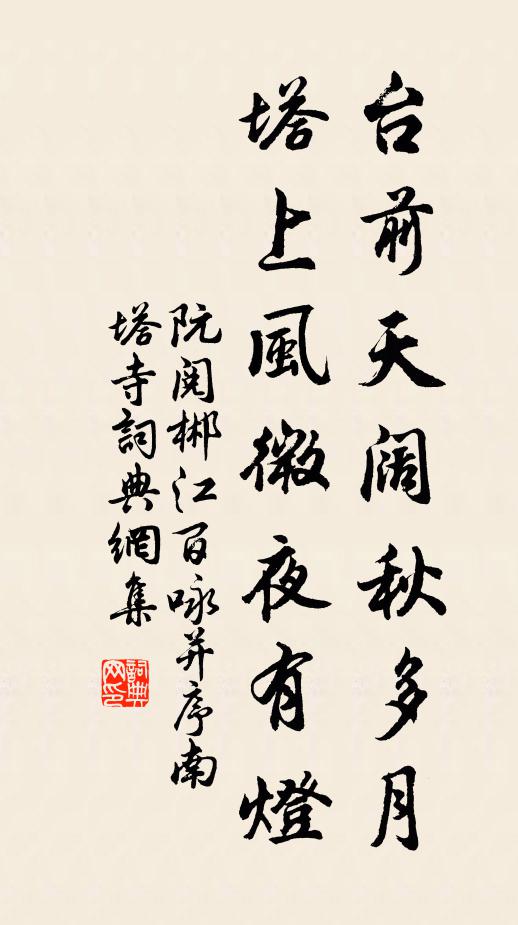 台前天阔秋多月
塔上風微夜有燈
阮阅郴江百咏并序南
塔寺詞典網集
詞典网印